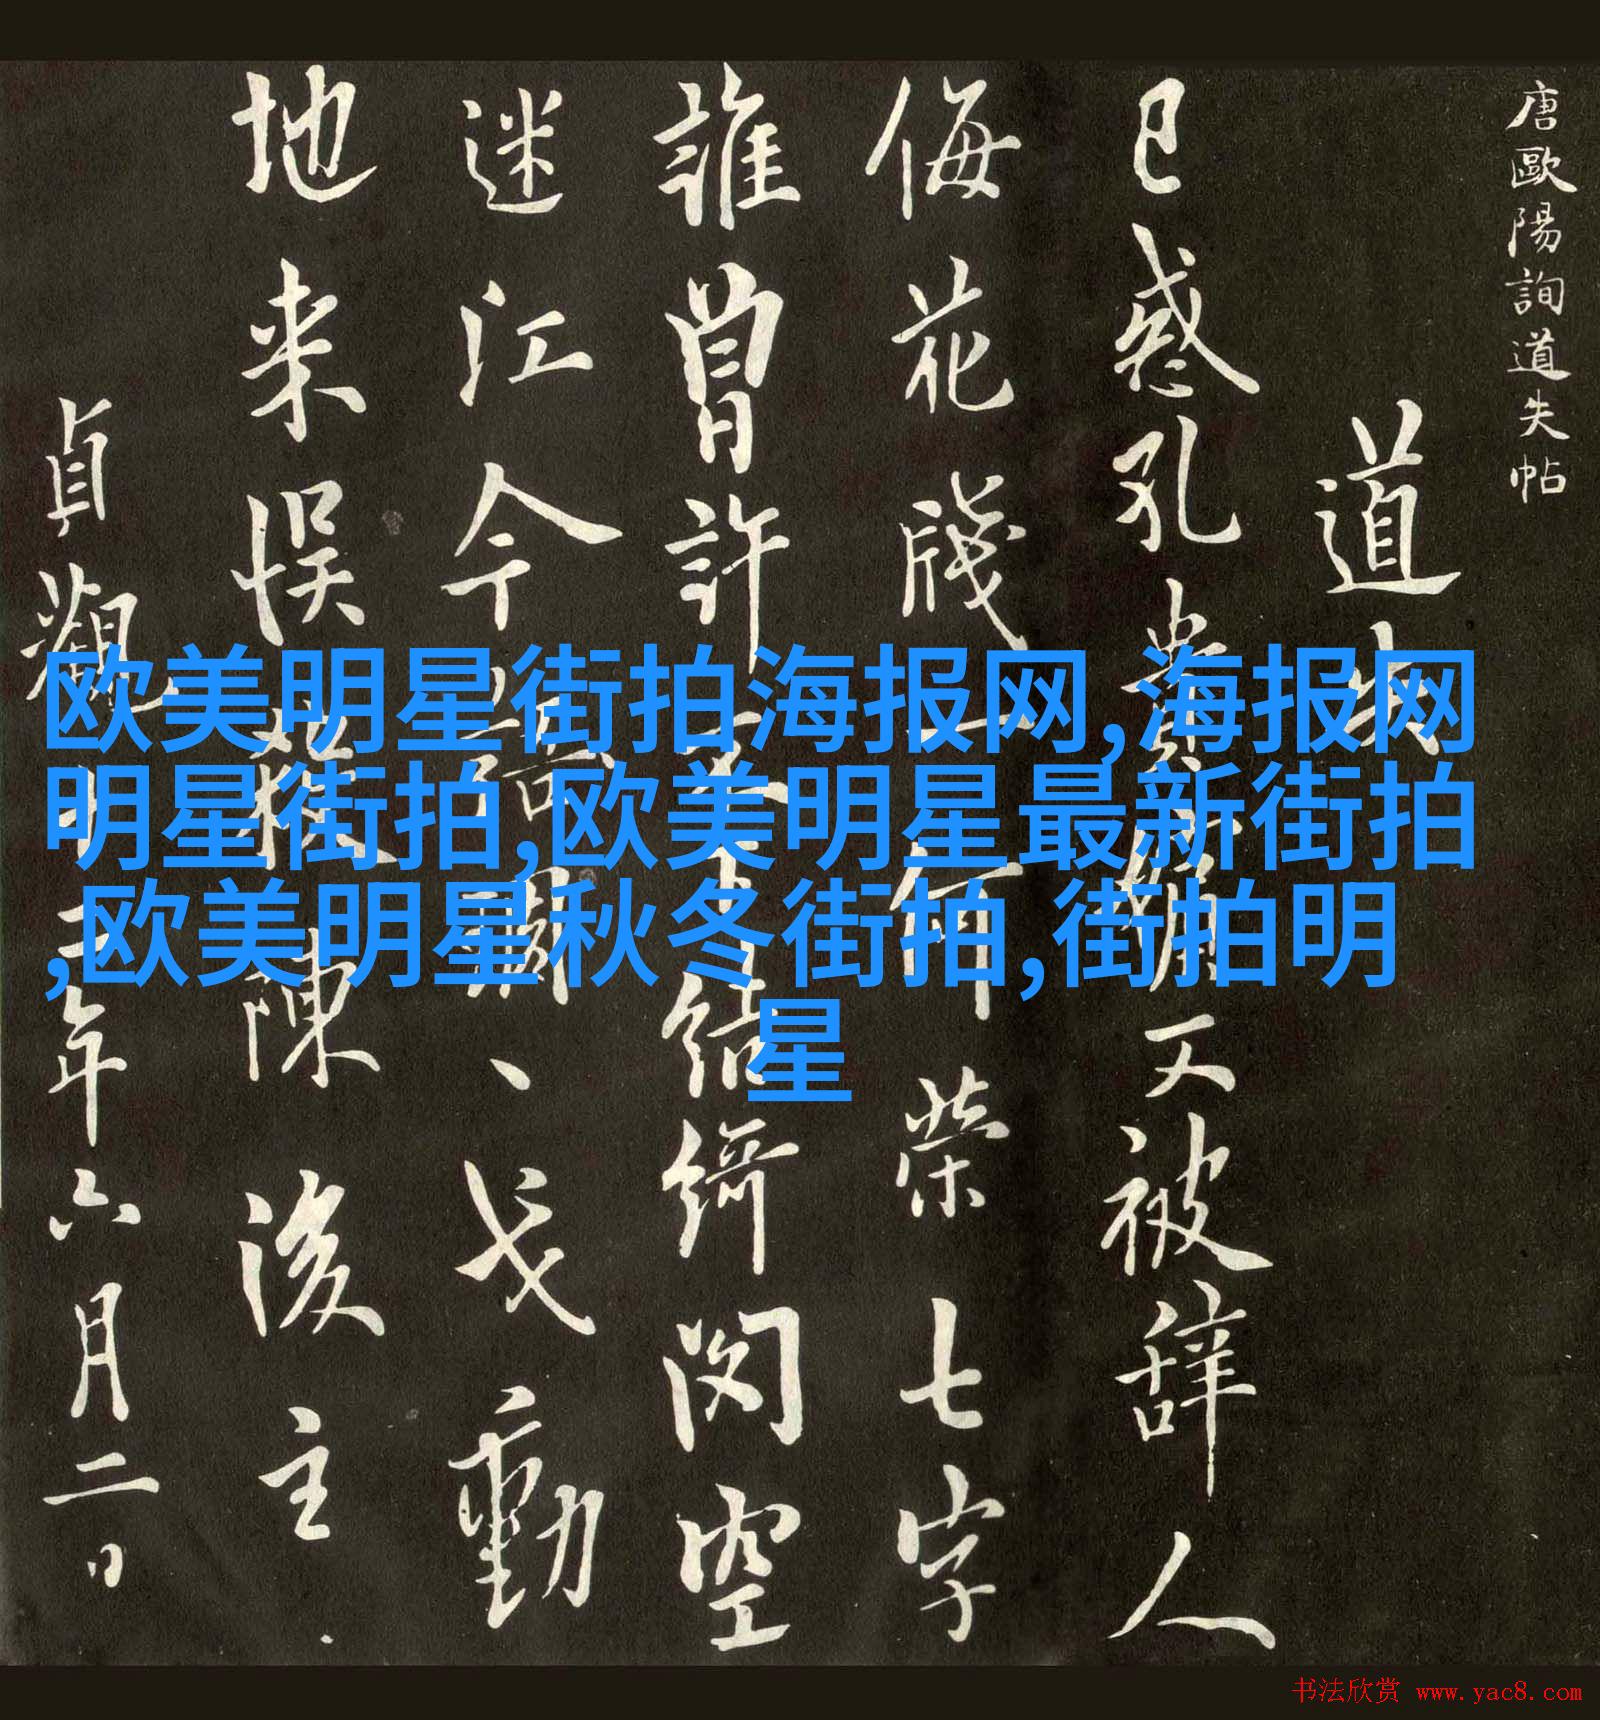 唐歐陽詢道失帖
道失
已惑孔貴嬪又被辞人
侮花牋一何荣七字
誰曾許不下结綺閣空
迷江令語雕、戈動
地来悮殺陳後主
貞觀年六月二日
欧美明星街拍海报网,海报网
明星街拍,欧美明星最新街拍
,欧美明星秋冬街拍,街拍明
星
书法欣赏 www.yac8.com